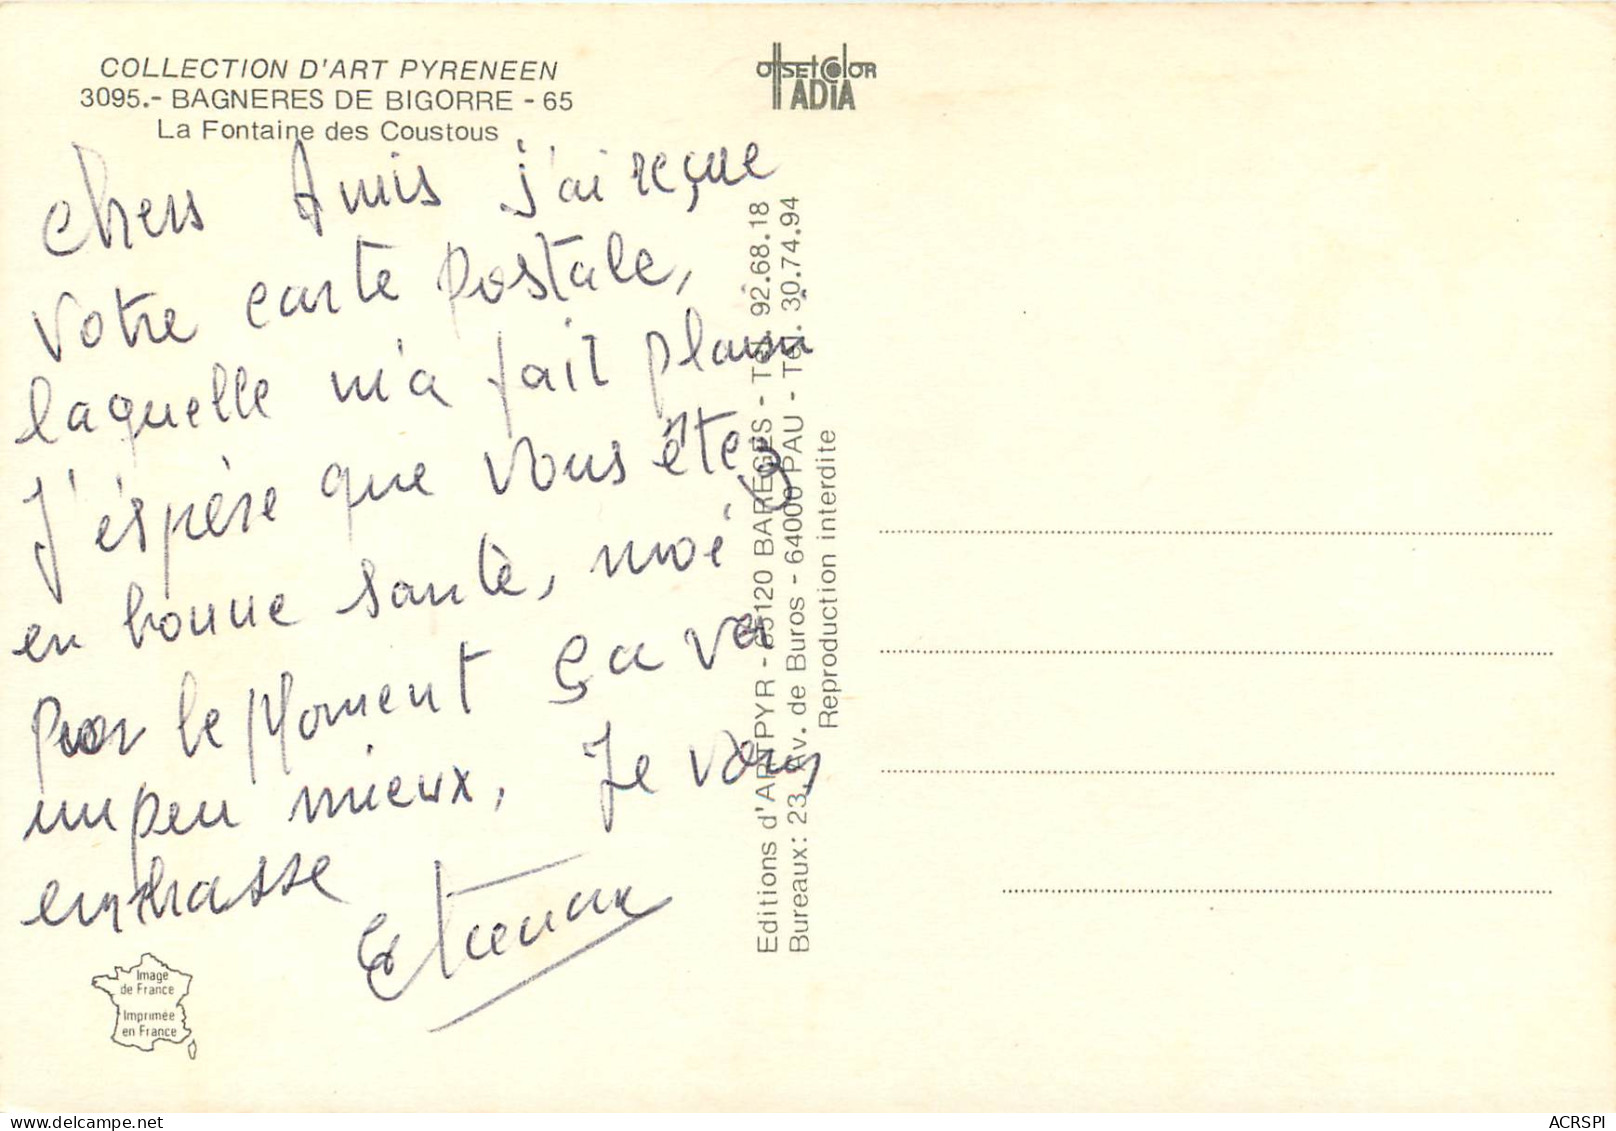 COLLECTION D'ART PYRENEEN
3095.- BAGNERES DE BIGORRE - 65
La Fontaine des Coustous
OffSEtColOR
ADIA
Chers Amis j'ai reçue
votre carte postale,
laquelle m'a fait plaisir
J'éspère que vous êtes
en bonne santè, moi
pour le Moment ça va
un peu mieux, Je vous
embrasse
Image
de France
Imprimée
en France
Editions d'ARTPYR - 65120 BAREGES - Tél. 92.68.18
Bureaux: 23, Av. de Buros - 64000 PAU - Tél. 30.74.94
Reproduction interdite
ACRSPI